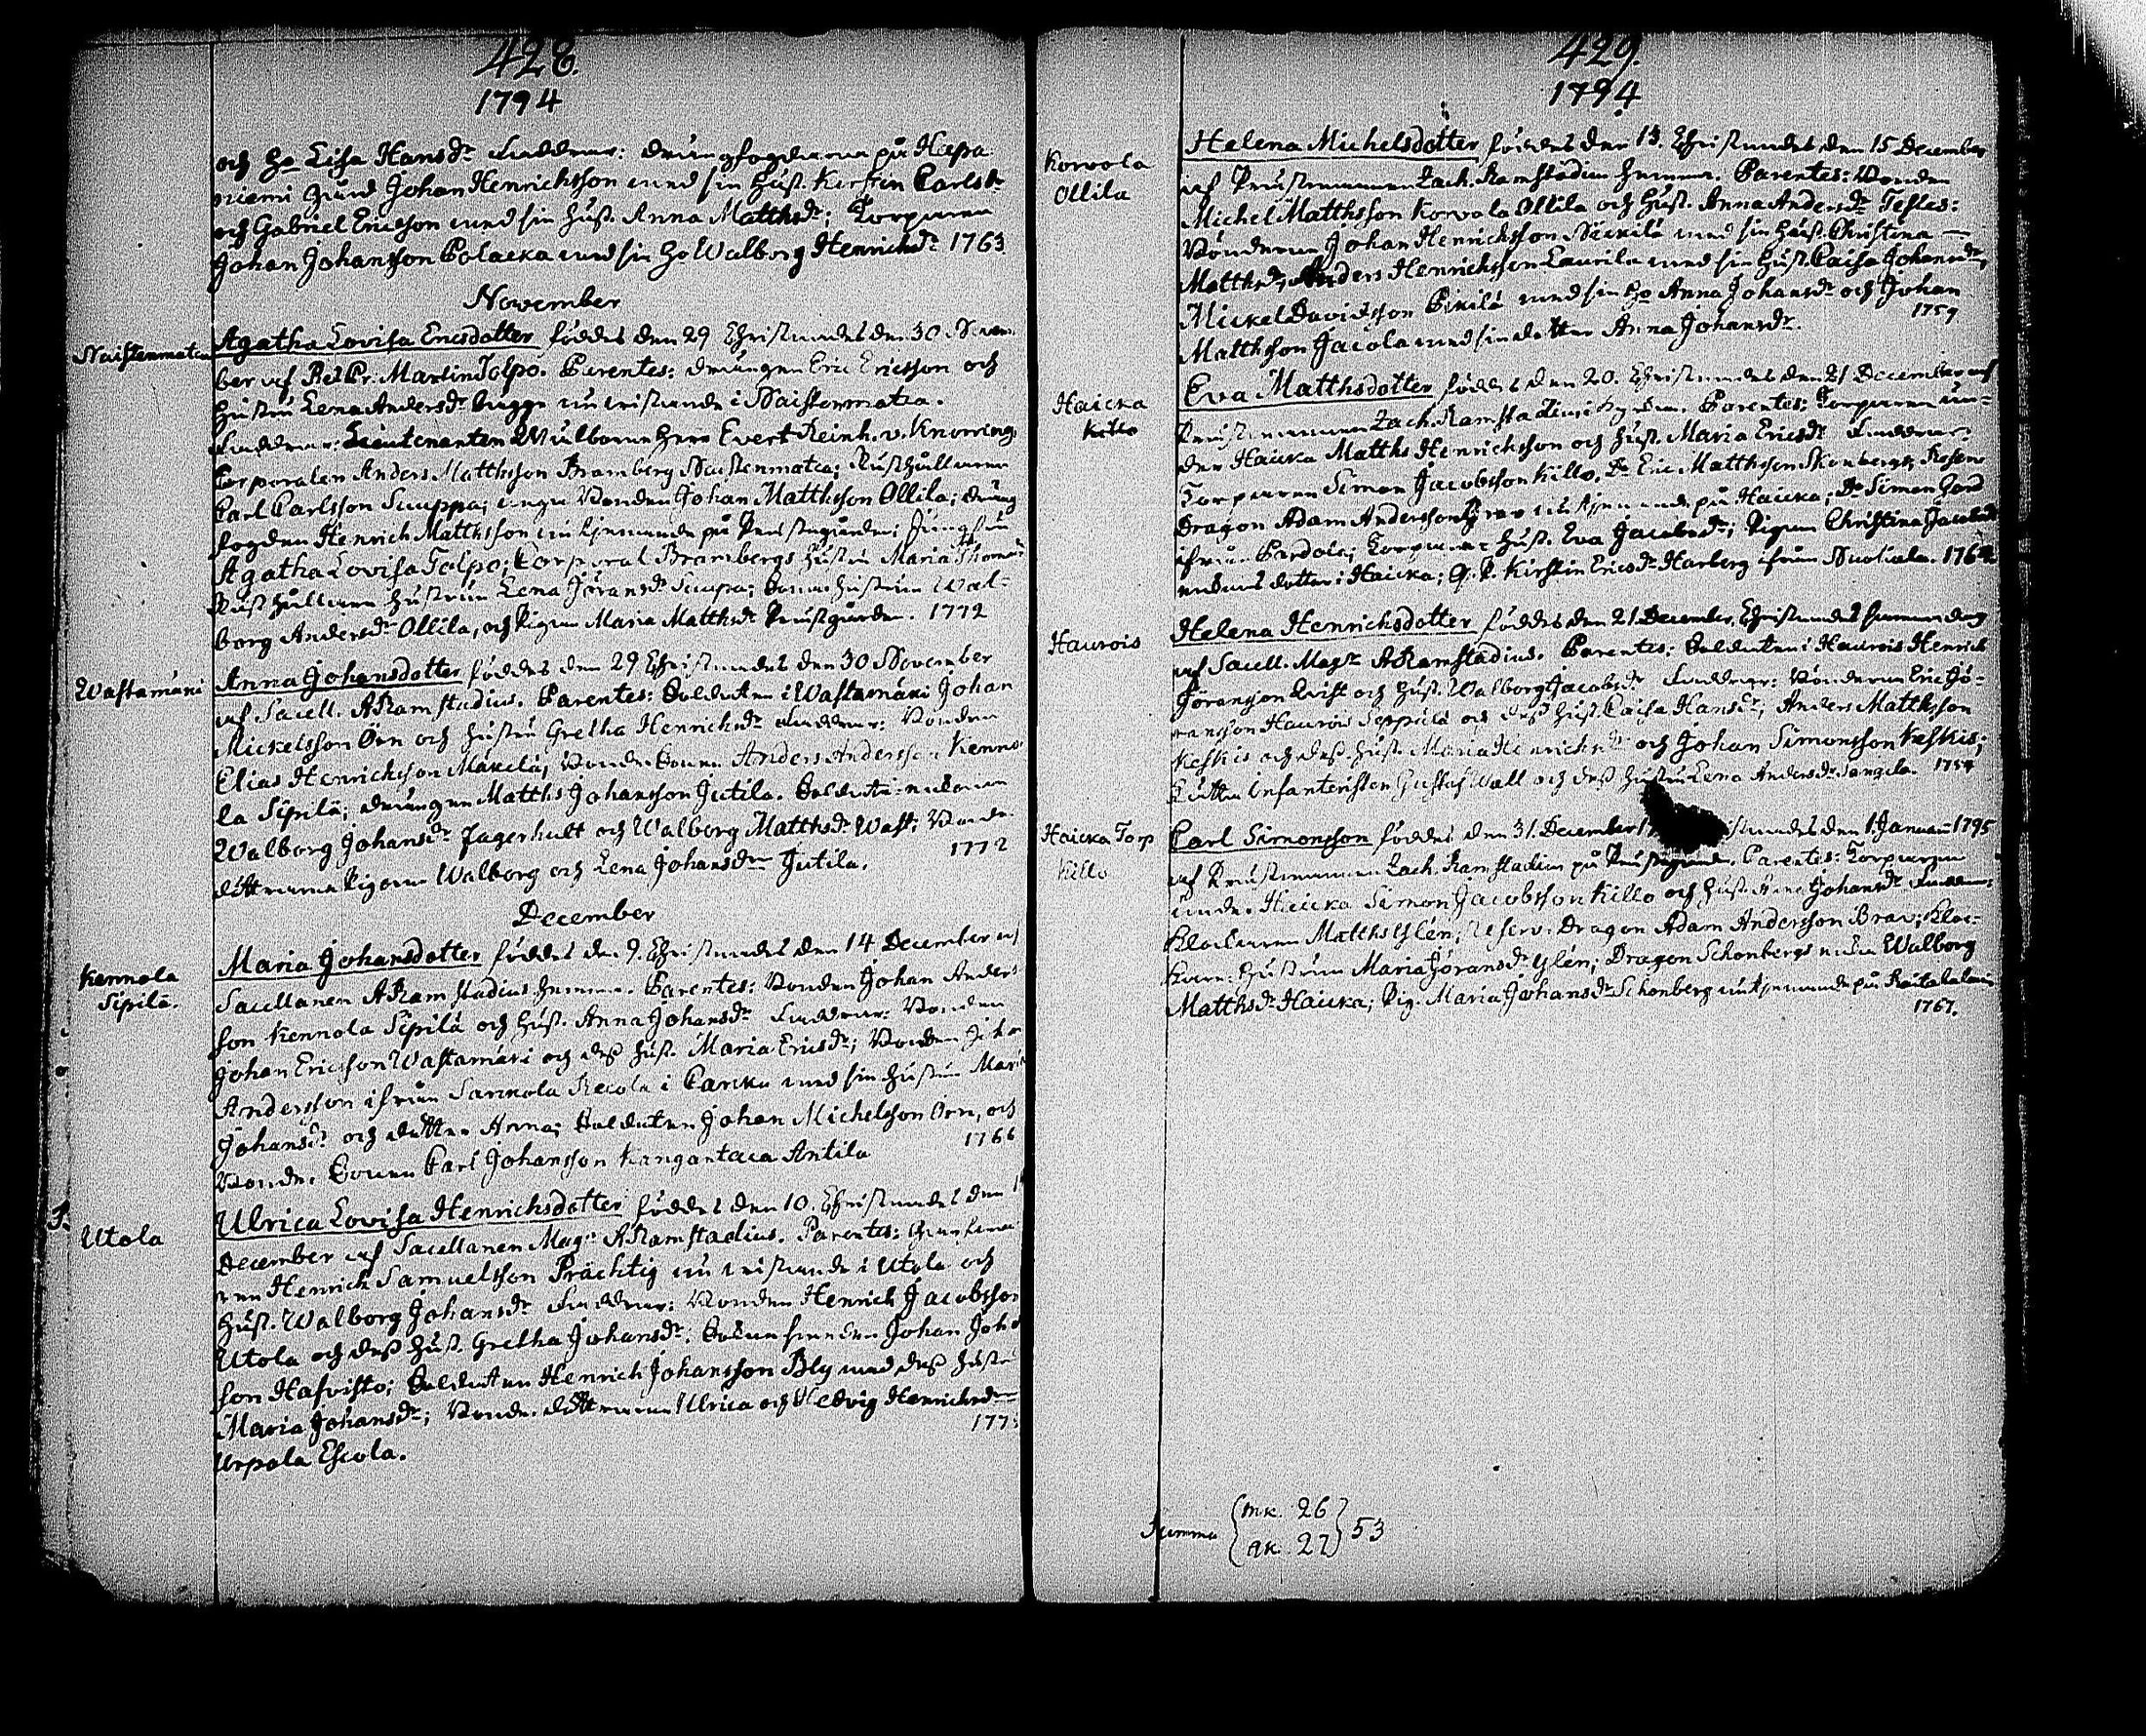 428.
1794
och ho Lisa Hansdr Faddrar: drängfogdarna på Hiepa
niemi gård Johan Henrichsson med sin hust. Kirstin Carlsdr
och Gabriel Ericsson med sin hust. Anna Matthsdr; Torparen
Johan Johansson Polacka med sin ho Walborg Henrichsdr 1763
November
Naistenmatca
Agatha Lovisa Ericsdotter föddes den 29 Christnades den 30 Novem
ber af Reg. Pr. Martin Tolpo. Parentes: drängen Eric Ericsson och
hustru Lena Andersdr bägge nu vistande i Naistenmatca.
Faddrar: Lieutenanten Wälborne Herr Evert Reinh. v. Knorring,
Corporalen Anders Matthsson Bramberg Naistenmatca; Rusthållaren
Carl Carlsson Sauppa; unga Bonden Johan Matthsson Ollila; dräng
fogden Henrich Matthsson nu tjenande på Prästegården; Jungfru
Agatha Lovisa Tolpo; Corporal Brambergs hustru Maria Thomasdr
Rusthållare hustrun Lena Jöransdr Sauppa; Bonde hustrun Wal-
borg Andersdr Ollila, och Pigan Maria Matthsdr Prästgården. 1772
Wastamäki
Anna Johansdotter föddes den 29 Christnades den 30 November
af Sacell. A Ramstadius. Parentes: Soldaten i Wastamäki Johan
Mickelsson Örn och hustru Gretha Henrichsdr Faddrar: Bonden
Elias Henrichsson Mäkelä; Bonde Sonen Anders Andersson Kenno
la Sipilä; drängen Matths Johansson Jutila. Soldate enkorna
Walborg Johansdr Jagerhult och Walborg Matthsdr Wast; Bonde
döttrarna Pigorna Walborg och Lena Johansdr Jutila. 1772
December
Kennola
Sipilä.
Maria Johansdotter föddes den 9. Christnades den 14 December af
Sacellanen A Ramstadius hemma. Parentes: Bonden Johan Anders
son Kennola Sipilä och hust. Anna Johansdr Faddrar: Bonden
Johan Ericsson Wastamäki och dess hust. Maria Ericsdr; Bonden Johan
Andersson ifrån Sarckola Recola i Parcku med sin hustru Maria
Johansdr och dotter Anna; Soldaten Johan Michelsson Örn, och
Bonde Sonen Carl Johansson Kangantaca Antila 1766
Utola
Ulrica Lovisa Henrichsdotter föddes den 10. Christnades den 1
December af Sacellanen Magr A Ramstadius. Parentes:
Henrich Samuelsson Prächtig nu vistande i Utola och
hust. Walborg Johansdr Faddrar: Bonden Henrich Jacobsson
Utola och dess hust. Gretha Johansdr; Johan Johs
son Hafvisto; Soldaten Henrich Johansson Bly med dess hustru
Maria Johansdr; Bonde döttrarna Ulrica och Hedvig Henrichsdr
Urpola Escola. 177
429.
1794
Korvola
Ollila
Helena Michelsdotter föddes den 13. Christnades den 15 December
af Prästmannen Zach. Ramstadius hemma. Parentes: Bonden
Michel Matthsson Korvola Ollila och hust. Anna Andersdr Testes:
Bönderna Johan Henrichsson Näckilä med sin hust. Christina
Matthsdr, Anders Henrichsson Laurila med sin hust. Caisa Johansdr,
Mickel Davidsson Pikilä med sin ho Anna Johansdr och Johan
Matthsson Jacola med sin dotter Anna Johansdr. 1759
Haicka
Killo
Eva Matthsdotter föddes den 20. Christnades den 21 December af
Prästmannen Zach. Ramstadius i Kyrkan. Parentes: Torparen un-
der Haicka Matths Henrichsson och hust. Maria Ericsdr Faddrar:
Torparen Simon Jacobsson Killo, Do Eric Matthsson Skonberg; Reserv
Dragon Adam Andersson Brav nu tjenande på Haicka; Do Simon Hord
ifrån Pardola; Torpare hust. Eva Jacobsdr; Pigan Christina Jacobsdr
enkans dotter i Haicka; Q. P. Kirstin Ericsdr Harberg ifrån Nuokala. 1764
Haurois
Helena Henrichsdotter föddes den 21 December, Christnades samma dag
af Sacell. Magr A Ramstadius. Parentes: Soldaten i Haurois Henrich
Jöransson Qvist och hust. Walborg Jacobsdr Faddrar: Bönderna Eric Jö-
ransson Haurois Seppälä och dess hust. Caisa Hansdr; Anders Matthsson
Keskis och dess hust. Maria Henrichsdr och Johan Simonsson Keskis;
Infanteristen Gustaf Wall och dess hustru Lena Andersdr Tangela. 1754
Haicka Torp
Killo
Carl Simonsson föddes den 31. December 1 istnades den 1. Januari 1795
af Prästmannen Zach. Ramstadius på Prästgården. Parentes: Torparen
under Haicka Simon Jacobsson Killo och hust. Anna Johansdr Faddrar:
Klockaren Matths Glén; Reserv. Dragon Adam Andersson Brav; Kloc-
kare hustrun Maria Jöransdr Glén; Dragon Schonbergs enka Walborg
Matthsdr Haicka; Pig. Maria Johansdr Schonberg nu tjenande på Rautakalmis
1767.
Summa { mk. 26
qk. 27 } 53